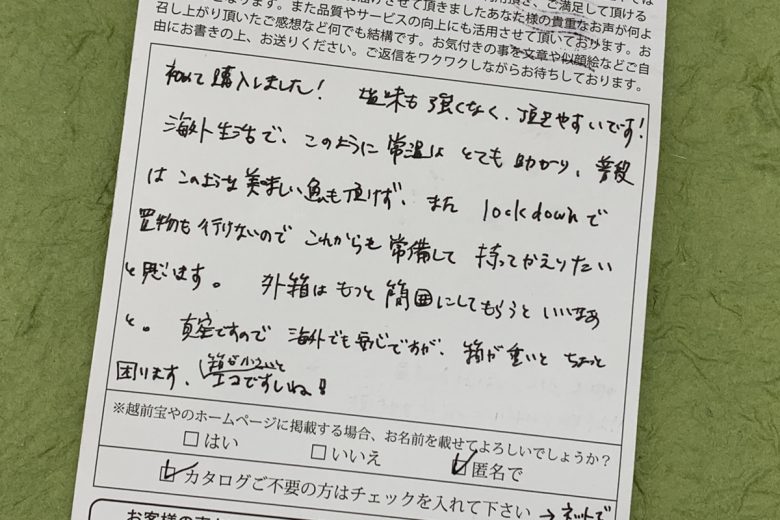 お届けさせて頂きましたあなた様の貴重なお声が何よ
ります。また品質やサービスの向上にも活用させて頂いております。お
召し上がり頂いたご感想など何でも結構です。お気付きの事を文章や似顔絵などご自
由にお書きの上、お送りください。ご返信をワクワクしながらお待ちしております。
初めて購入しました! 塩味も強くなく、頂きやすいです!
海外生活で、このように常温は とても助かり、普段
は このような美味しい魚も頂けず、また lockdownで
買物も行けないので これからも 常備して 持ってかえりたい
と思います。 外箱は もっと 簡囲にしてもらうと いいなあ
と。 真空ですので 海外でも安心ですが、箱が重いと ちょっと
困ります、箱が小さいと
エコですしね!
※越前宝やのホームページに掲載する場合、お名前を載せてよろしいでしょうか?
□はい □いいえ ☑匿名で
☑カタログご不要の方はチェックを入れて下さい →ネットで
お客様の